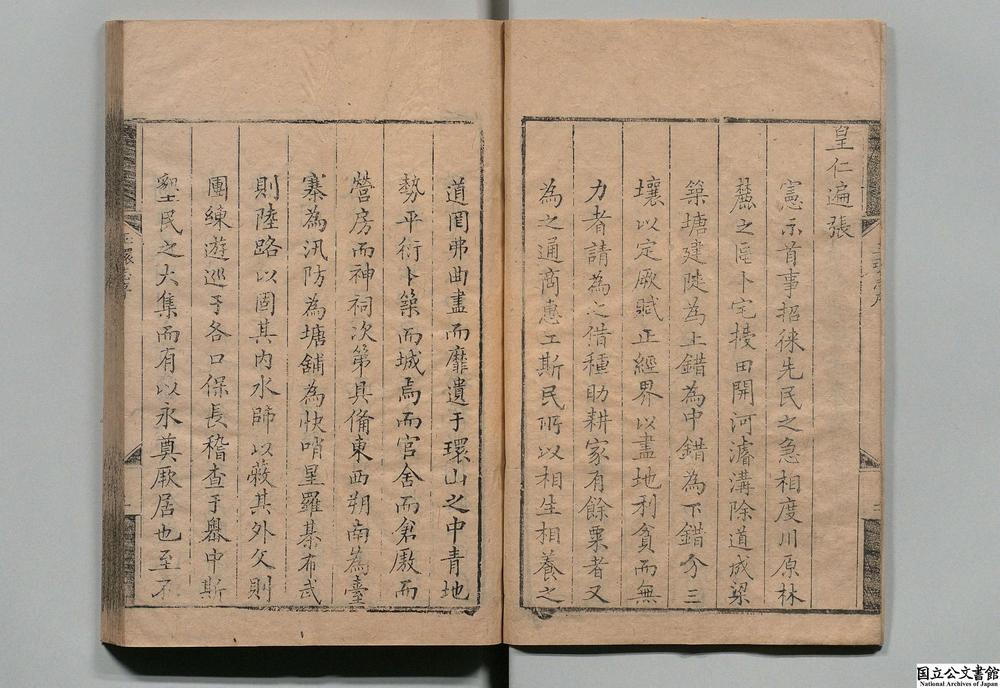 皇仁遍張
憲示首事招徠先民之急相度川原林
麓之區卜宅授田開河濬溝除道成梁
築塘建陡為上錯為中錯為下錯分三
壤以定厥賦正經界以盡地利貧而無
力者請為之借種助耕家有餘粟者又
為之通商惠工斯民所以相生相養之
道罔弗曲盡而靡遺于環山之中青地
勢平衍卜築而城焉而官舍而倉廒而
營房而神祠次第具備東西朔南為臺
寨為汛防為塘舖為快哨星羅棊布武
則陸路以固其內水師以蔽其外文則
團練遊巡于各口保長稽查于嶴中斯
野民之大集而有以永奠厥居也至不
国立公文書館
National Archives of Japan